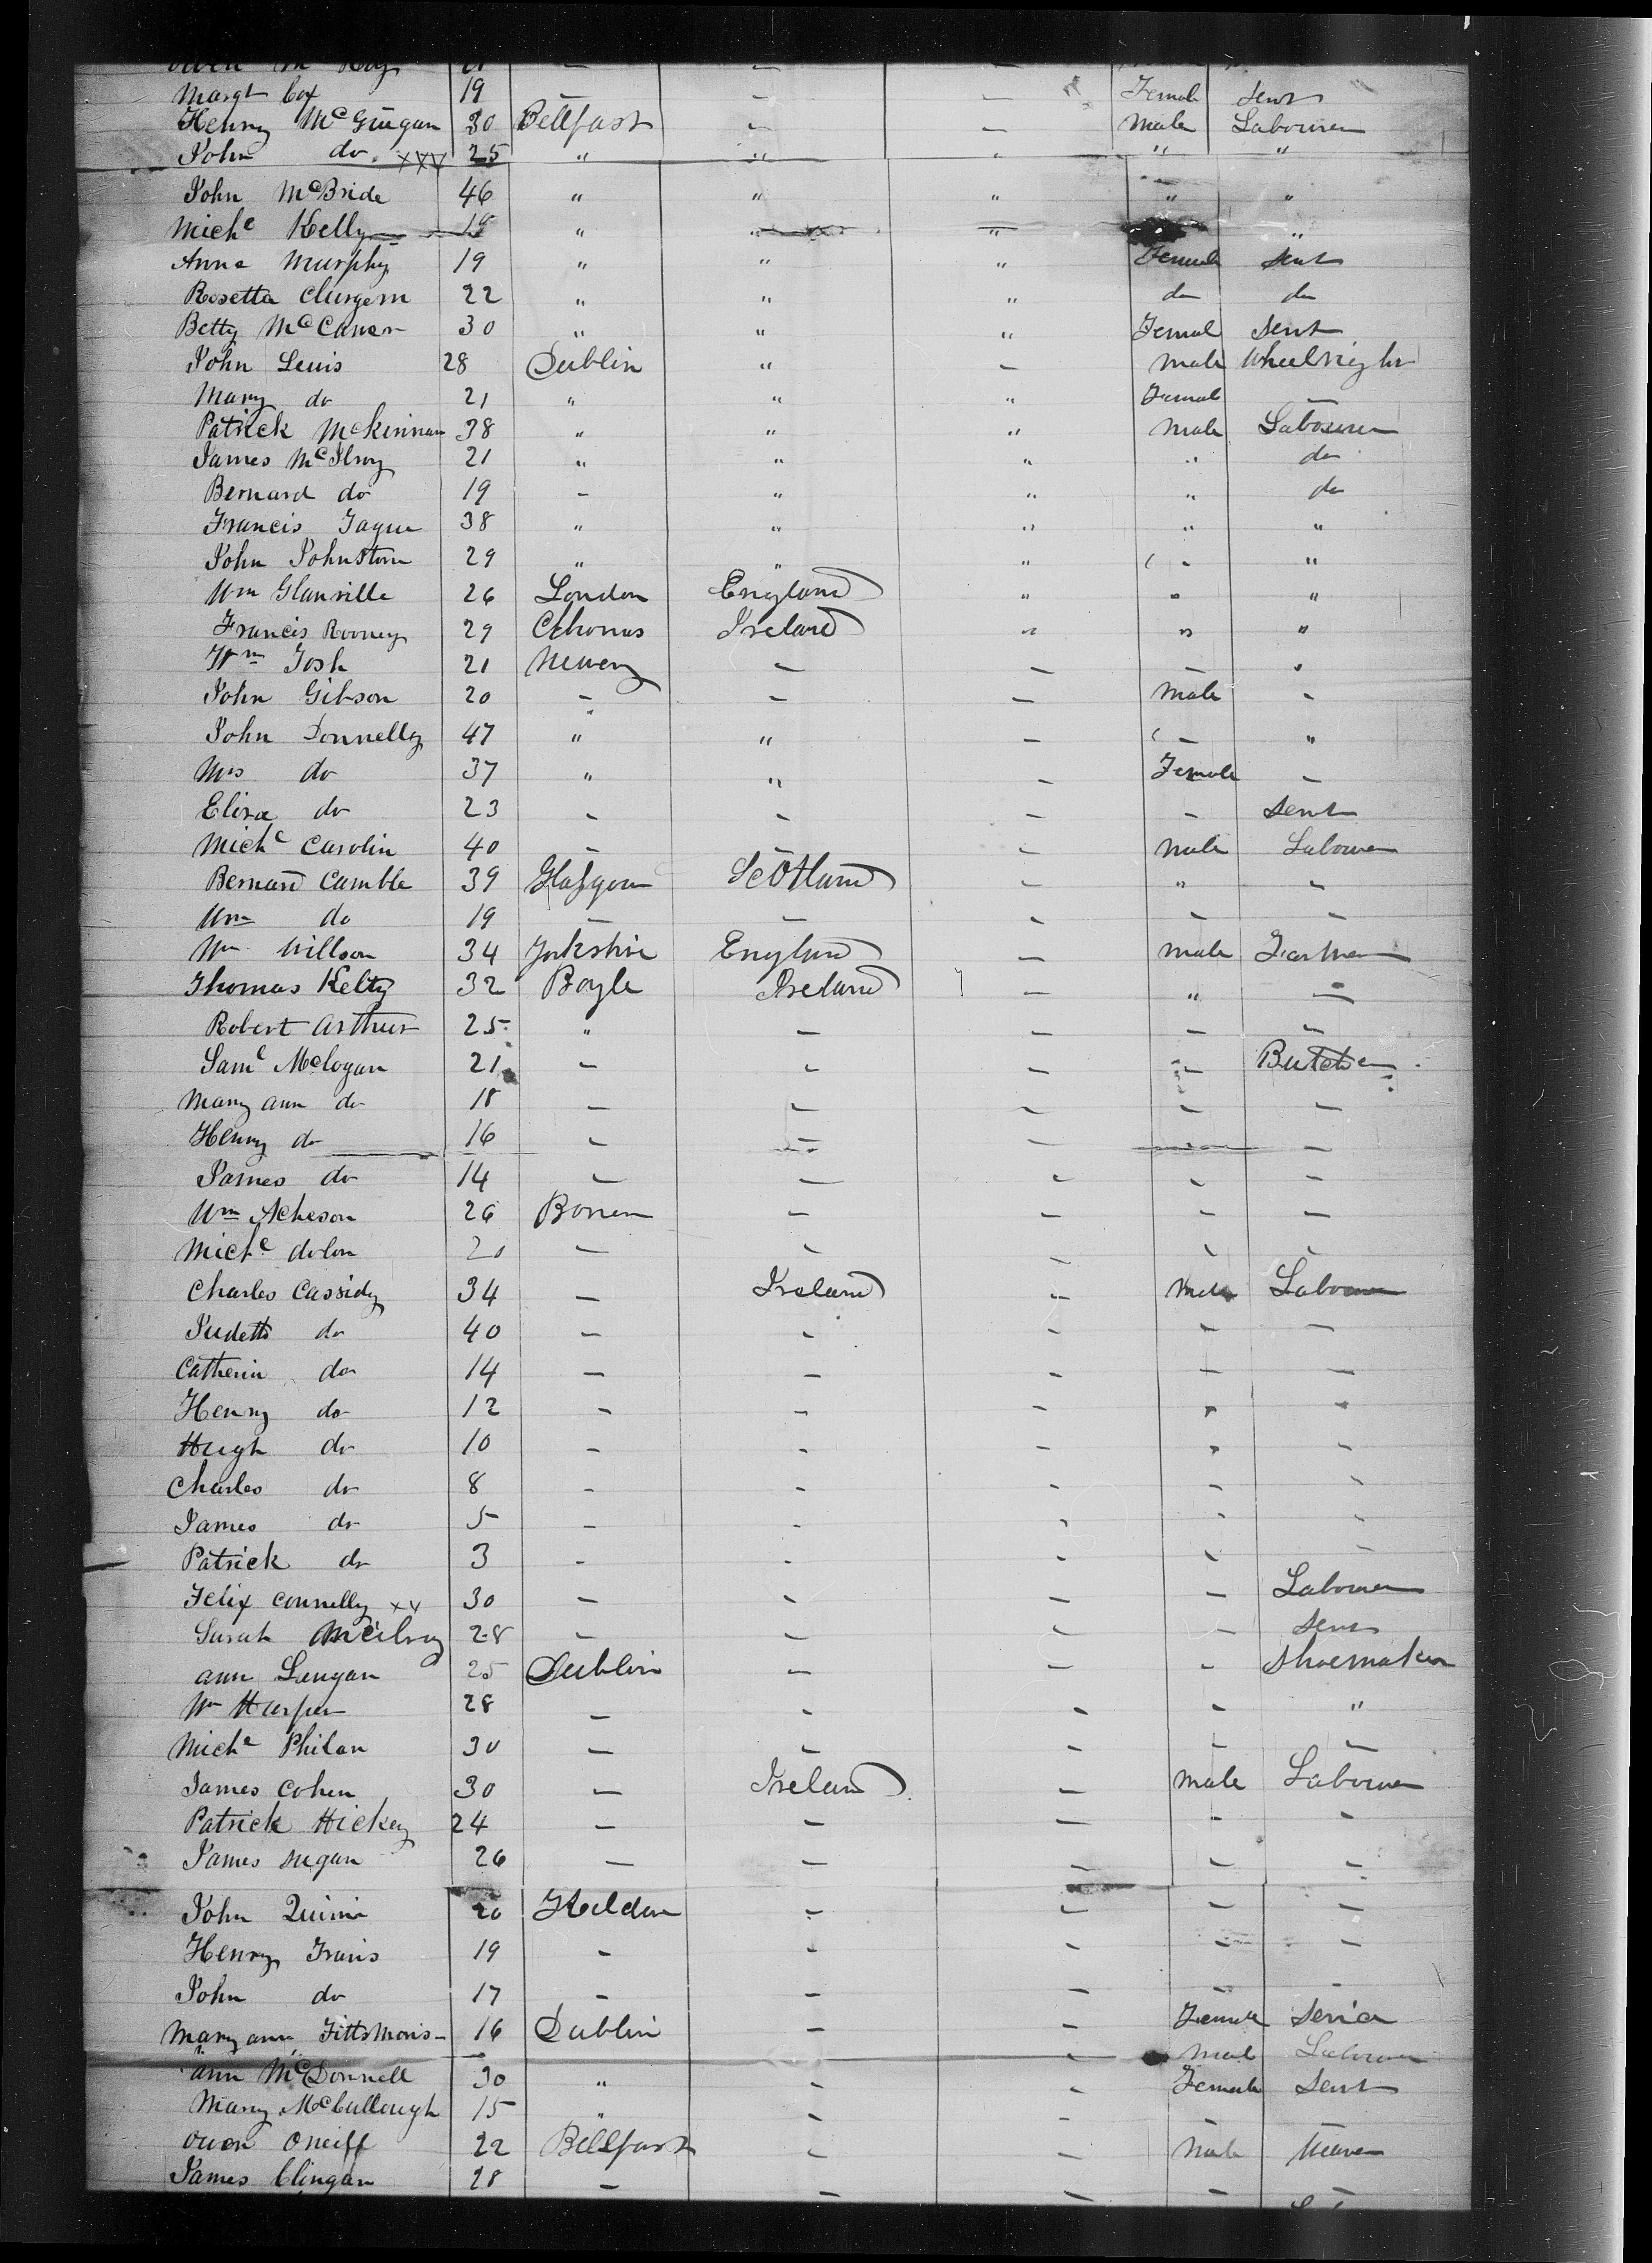 Margt Cox 19 - - - Female Servt
Henry McGuigan 30 Bellfast - - Male Labourer
John do. xxx 25 " " " " "
John McBride 46 " " " " "
Miche Kelly 18 " " " "
Anne Murphy 19 " " " Female Servt
Rosetta Clurgem 22 " " " do do
Betty McCaner 30 " " " Femal Servt
John Lewis 28 Dublin " - Male Wheelright
Mary do 21 " " " Female -
Patrick McKinnan 38 " " " Male Labourer
James McIlroy 21 " " " " do
Bernard do 19 - " " " do
Francis Tague 38 " " " " "
John Johnston 29 " " " " "
Wm Glanville 26 London England " " "
Francis Rooney 29 Ireland " " "
Wm Tosh 21 Newery - - - "
John Gibson 20 - - - Male -
John Donnelly 47 " " - - "
Mrs do 37 " " - Female -
Eliza do 23 - - - - Servt
Michl Carolin 40 - - - Male Labourer
Bernard Camble 39 Glasgow Scotland - " -
Wm do 19 - - - - -
Wm Willson 34 Yorkshire England - Male Farmer
Thomas Kelty 32 Boyle Ireland - " -
Robert Arthur 25 " - - - -
Saml McLogan 21 - - - - Butcher
Mary ann do 18 - - - - -
Henry do 16 - - - - -
James do 14 - - - - -
Wm Acheson 26 - - - -
Michl dolon 20 - - - - -
Charles Cassidy 34 - Ireland - Male Labourer
Judeth do 40 - - - - -
Catherin do 14 - - - - -
Henry do 12 - - - - -
Hugh do 10 - - - - -
Charles do 8 - - - - -
James do 5 - - - - -
Patrick do 3 - - - - -
Felix Connelly xx 30 - - - - Labourer
Sarah McIlroy 28 - - - - Servt
ann Langan 25 Dublin - - - Shoemaker
Wm Harper 28 - - - - "
Michl Philan 30 - - - - -
James Cohen 30 - Ireland - Male Labourer
Patrick Hickey 24 - - - - -
James 26 - - - - -
John Quinn 20 Kildare - - - -
Henry Travis 19 - - - - -
John do 17 - - - - -
Mary ann Fittsmoris 16 Dublin - - Female
- Male Labourer
ann McDonnell 30 " - - Female Servt
Mary McCullough 15 " - -
Owen Oneill 22 Bellfast - - Male Weaver
James Clingan 28 - - - - -